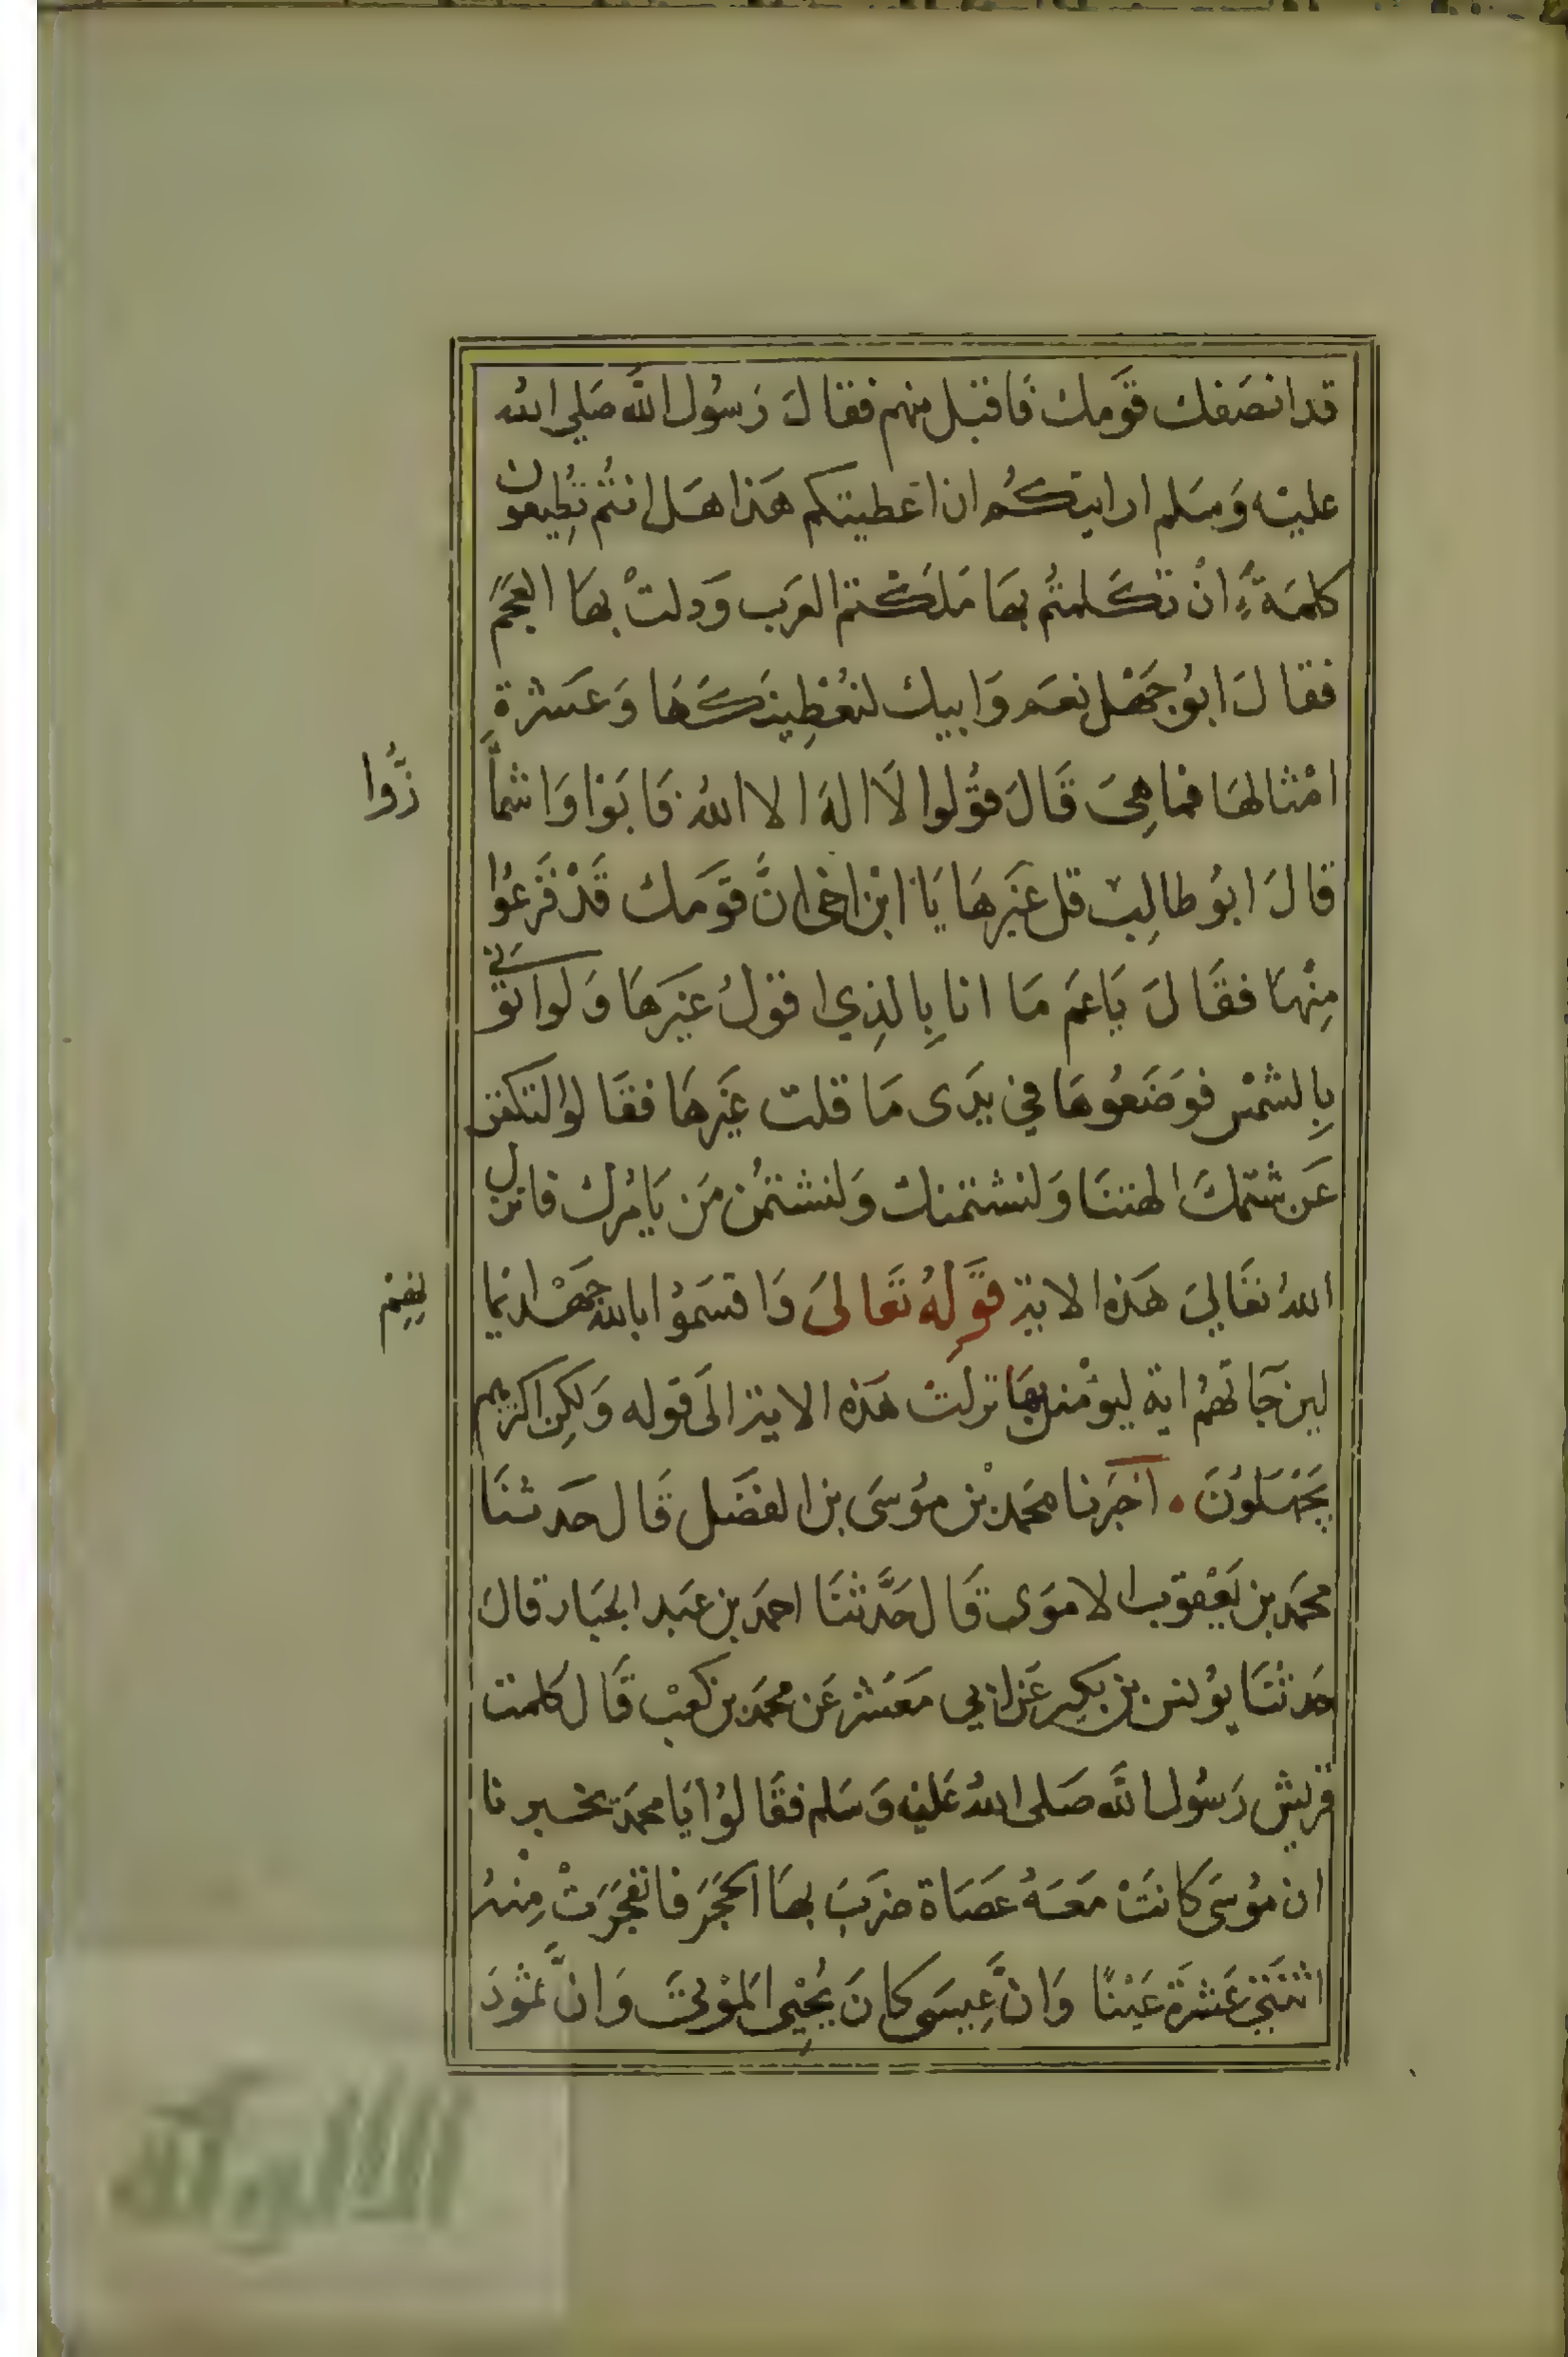 قد انصفك قومك فاقبل منهم فقال رسول الله صلي الله
عليه وسلم ارايتكم ان اعطيتكم هذا هل انتم تطيعون
كلمة ان تكلمتم بها ملكتم العرب ودلت بها العجم
فقال ابو جهل نعم وابيك لنعطينكها وعشرة
امثالها فما هي قال قولوا لا اله الا الله فابوا واشما
زوا
قال ابو طالب قل غيرها يا ابن اخى ان قومك قد فزعوا
منها فقال يا عم ما انا بالذي اقول غيرها ولو اتونى
بالشمس فوضعوها في يدى ما قلت غيرها فقالوا لتكفن
عن شتمك الهتنا ولنشتمنك ولنشتمن من يامرك فانزل
الله تعالي هذه الاية قوله تعالى واقسموا بالله جهد ايما
نهم
لين جاتهم اية ليؤمنن بها نزلت هذه الاية الى قوله ولكن اكثرهم
يجهلون . اخبرنا محمد بن موسى بن الفضل قال حدثنا
محمد بن يعقوب الاموى قال حدثنا احمد بن عبد الجبار قال
حدثنا يونس بن بكير عن ابي معشر عن محمد بن كعب قال كلمت
قريش رسول الله صلى الله عليه وسلم فقالوا يا محمد تخبرنا
ان موسى كانت معه عصاة ضرب بها الحجر فانفجرت منه
اثنتى عشرة عينا وان عيسى كان يحيى الموتى وان ثمود
الالوكة